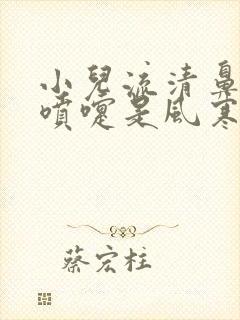 小兒流清鼻
噴嚏是風寒
蔡宏柱